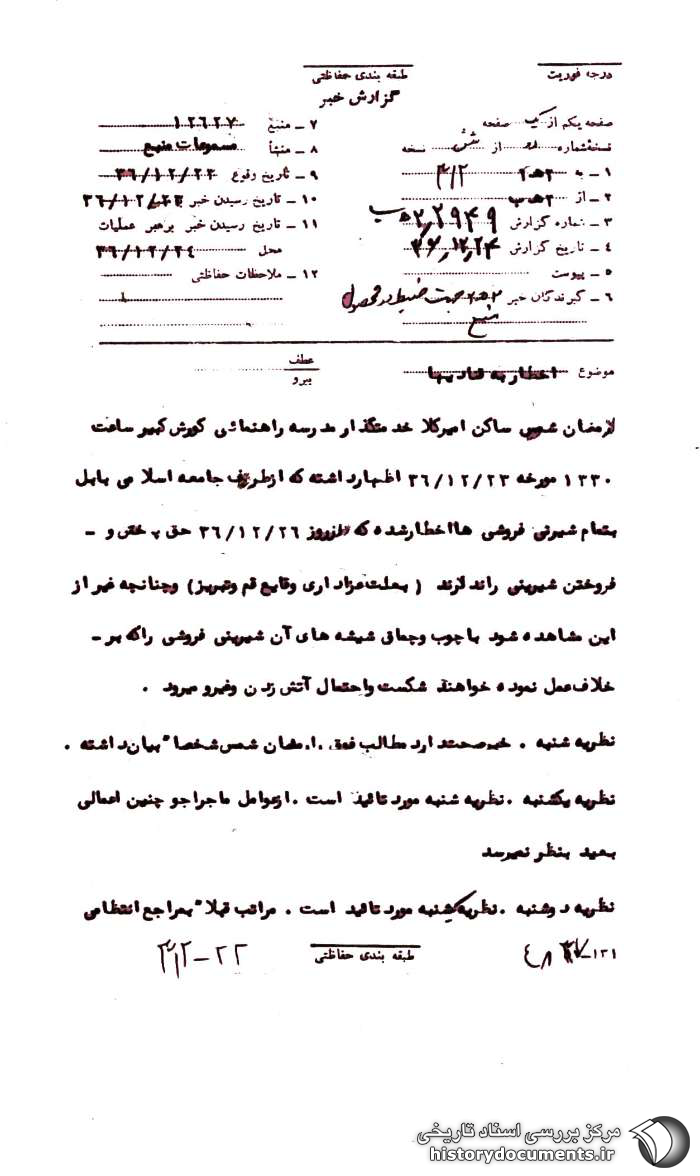 درجه فوریت
طبقه بندی حفاظتی
گزارش خبر
صفحه یکم از یک صفحه
نسخه شماره دو از شش نسخه
۱ – به ۳۱۲
۲ – از ۲ ه‍ ب
۳ – شماره گزارش ۲۹۴۹ / ۲ ه‍ ب
۴ – تاریخ گزارش ۳۶/۱۲/۲۴
۵ – پیوست
۶ – گیرندگان خبر
منبع
۷ – منبع ۱۲۶۲۷
۸ – منشأ مسموعات منبع
۹ – تاریخ وقوع ۳۶/۱۲/۲۳
۱۰ – تاریخ رسیدن خبر ۳۶/۱۲/۲۳
۱۱ – تاریخ رسیدن خبر برهبر عملیات
محل ۳۶/۱۲/۲۴
۱۲ – ملاحظات حفاظتی
موضوع اخطار به قنادیها
عطف
پیرو
رمضان شمس ساکن امیرکلا خدمتگذار مدرسه راهنمائی کورش کبیر ساعت
۱۳۳۰ مورخه ۳۶/۱۲/۲۳ اظهار داشته که از طرف جامعه اسلامی بابل
بتمام شیرنی فروشی ها اخطار شده که از روز ۳۶/۱۲/۲۶ حق پختن و –
فروختن شیرینی را ندارند ( بعلت عزاداری وقایع قم و تبریز) و چنانچه غیر از
این مشاهده شود با چوب و چماق شیشه های آن شیرینی فروشی را که بر –
خلاف عمل نموده خواهند شکست و احتمال آتش زدن و غیرو میرود .
نظریه شنبه . خبر صحت دارد مطالب فوق را رمضان شمس شخصا" بیان داشته .
نظریه یکشنبه . نظریه شنبه مورد تائید است . از عوامل ماجراجو چنین اعمالی
بعید بنظر نمیرسد
نظریه دوشنبه . نظریه یکشنبه مورد تائید است . مراتب قبلا" بمراجع انتظامی
طبقه بندی حفاظتی
۳۱۲–۲۲
مرکز بررسی اسناد تاریخی
historydocuments.ir